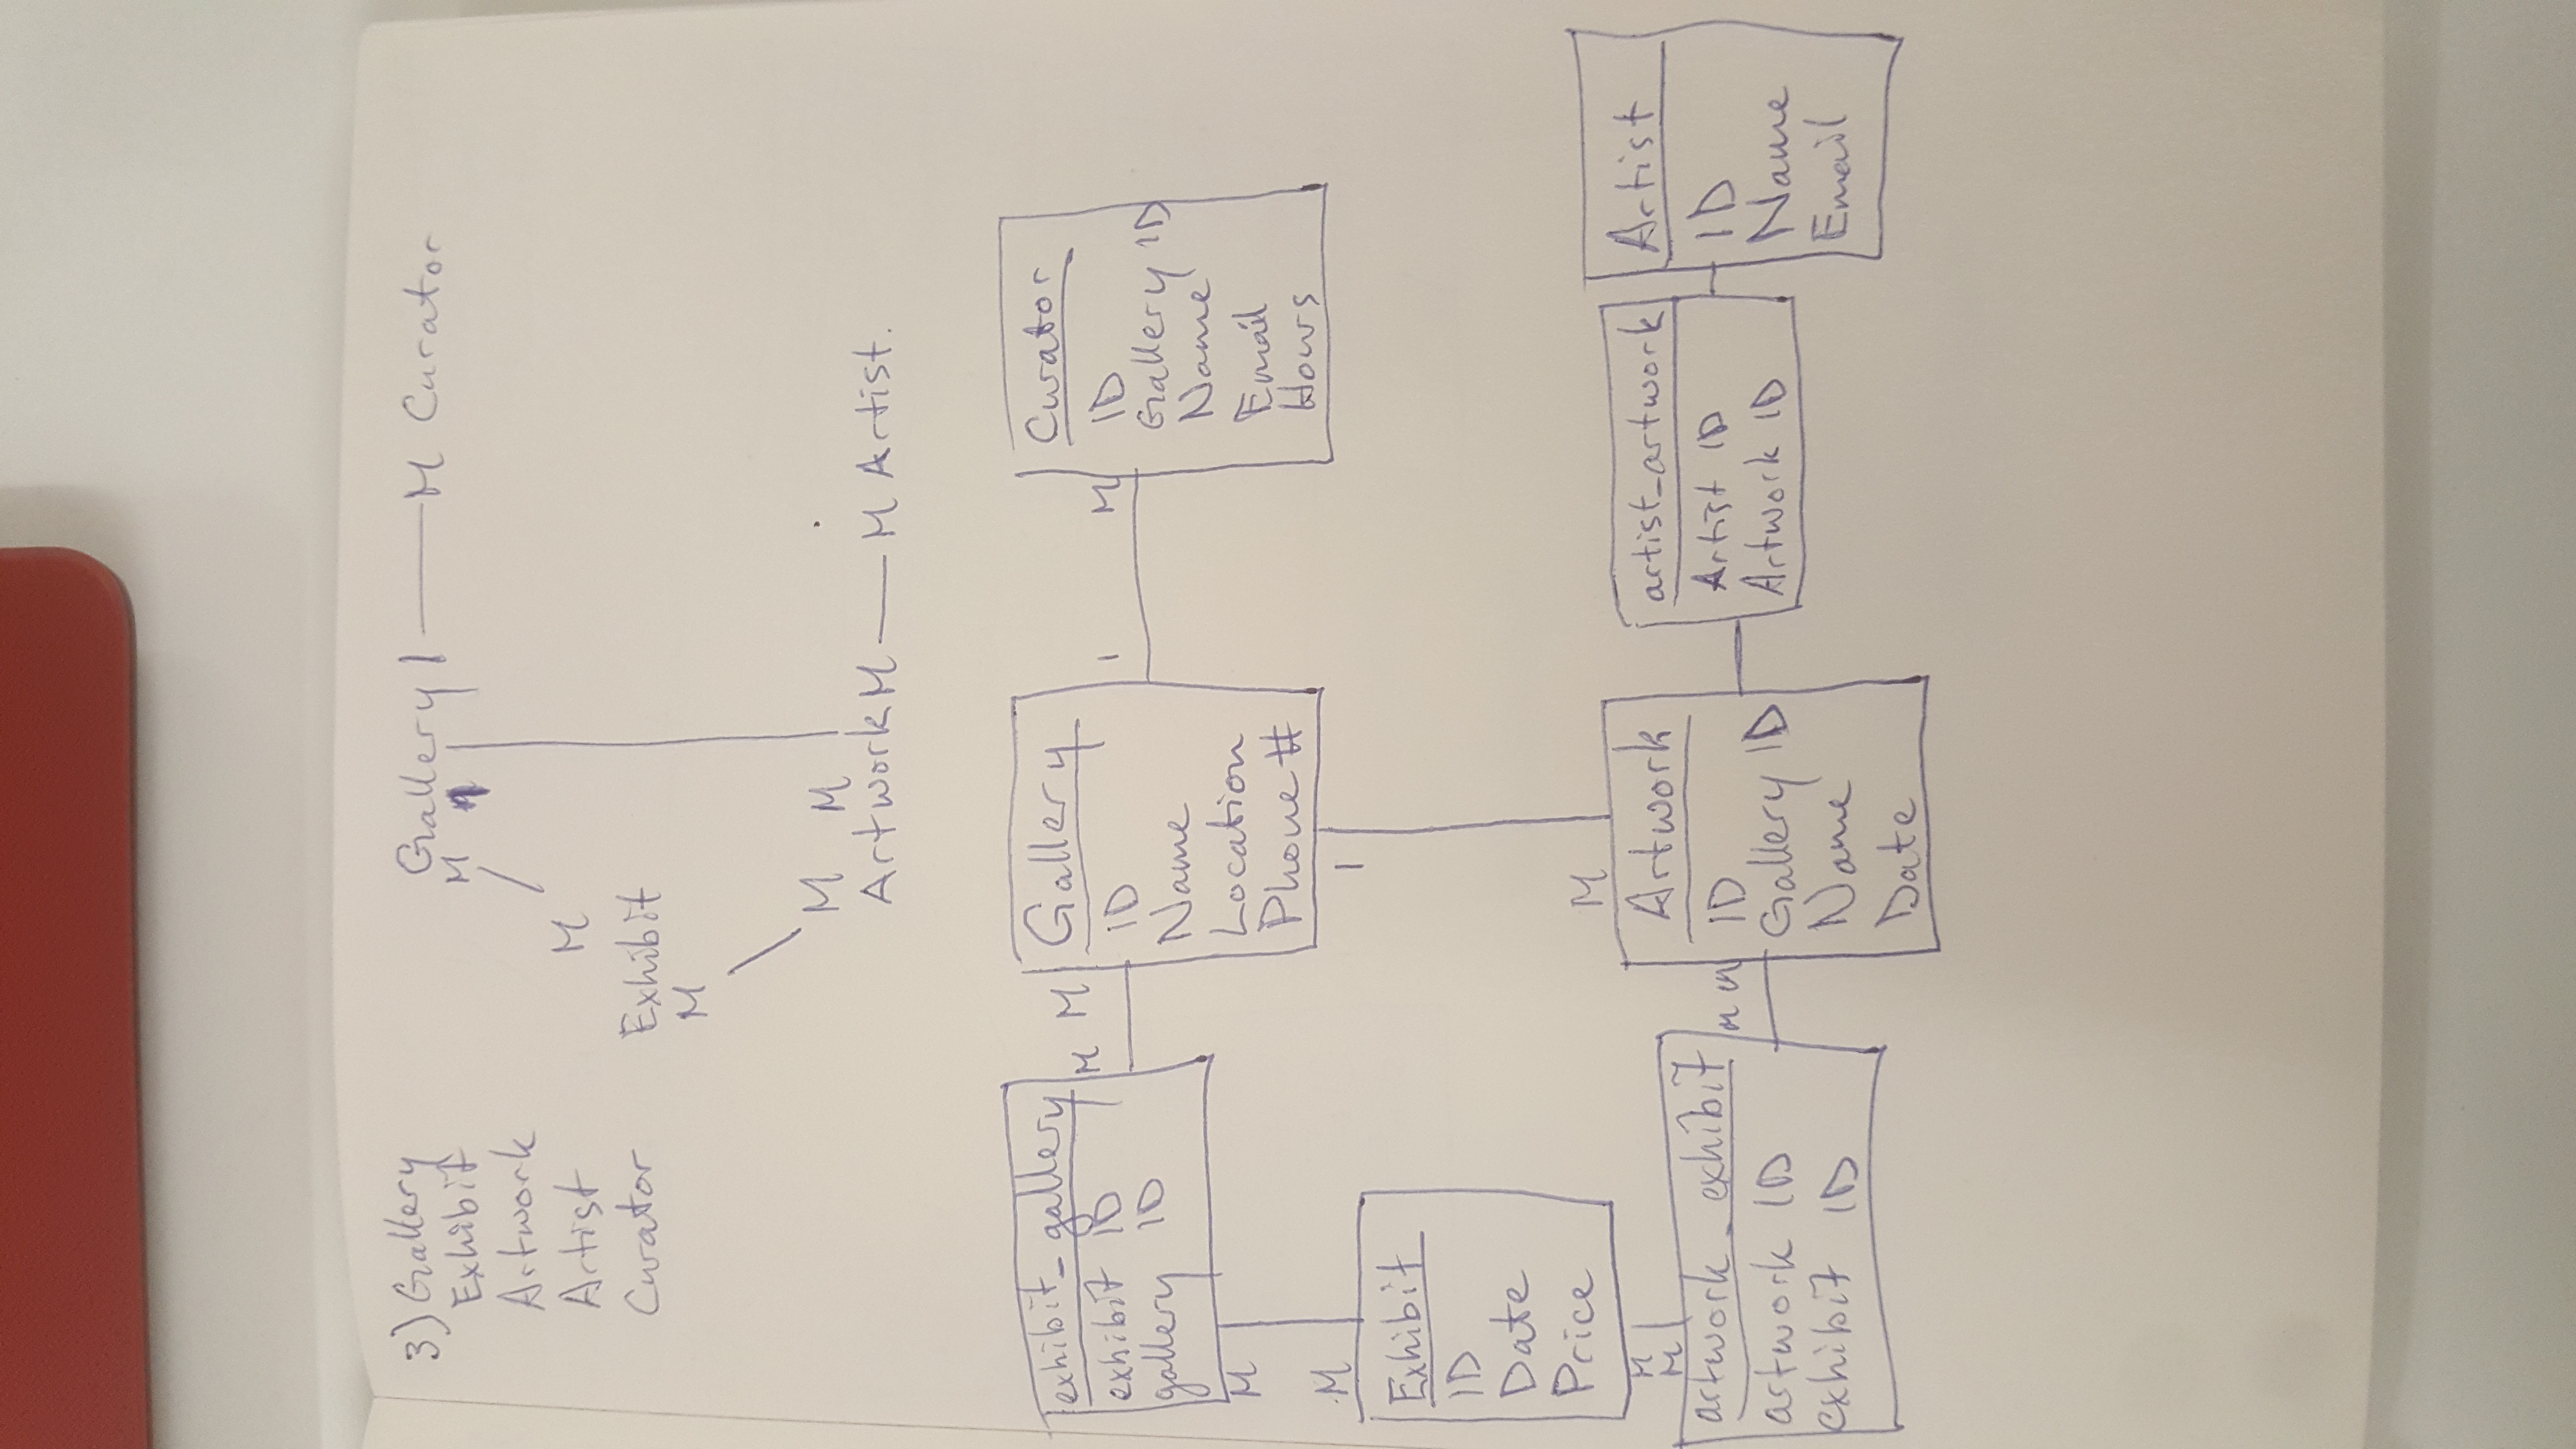 3) Gallery
Exhibit
Artwork
Artist
Curator
Gallery 1 M Curator
M 1
M
Exhibit
M
M M
Artwork M M Artist.
exhibit_gallery
exhibit ID
gallery ID
M M
Gallery
ID
Name
Location
Phone #
1 M
Curator
ID
Gallery ID
Name
Email
Hours
M
M
Exhibit
ID
Date
Price
M
M
1
M
artwork_exhibit
artwork ID
exhibit ID
M M
Artwork
ID
Gallery ID
Name
Date
artist_artwork
Artist ID
Artwork ID
Artist
ID
Name
Email